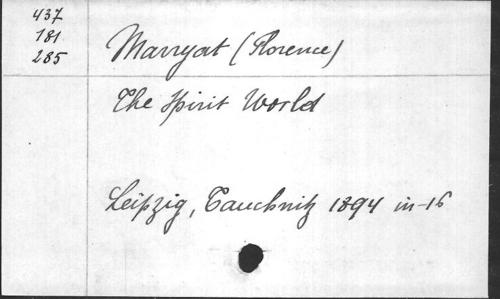 437
181
285
Marryat (Florence)
The Spirit World
Leipzig, Tauchnitz 1894 in-16